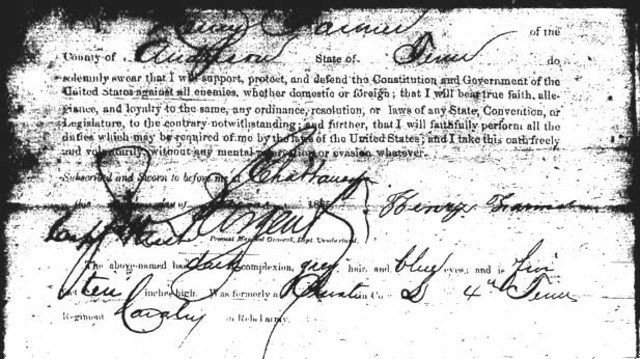 Henry Farmer of the
County of Anderson State of Tenn do
solemnly swear that I will support, protect, and defend the Constitution and Government of the
United States against all enemies, whether domestic or foreign; that I will bear true faith, alle-
giance, and loyalty to the same, any ordinance, resolution, or laws of any State, Convention, or
Legislature, to the contrary notwithstanding; and further, that I will faithfully perform all the
duties which may be required of me by the laws of the United States; and I take this oath freely
and voluntarily, without any mental reservation or evasion whatever.
Subscribed and Sworn to before me at Chattanooga
this day of 186 Henry Farmer
Capt
Provost Marshal General, Dept. Cumberland.
The above-named has dark complexion, grey hair, and blue eyes; and is five
feet ten inches high. Was formerly a Private in Co. D 4th Tenn
Regiment Cavalry in Reb. Army.